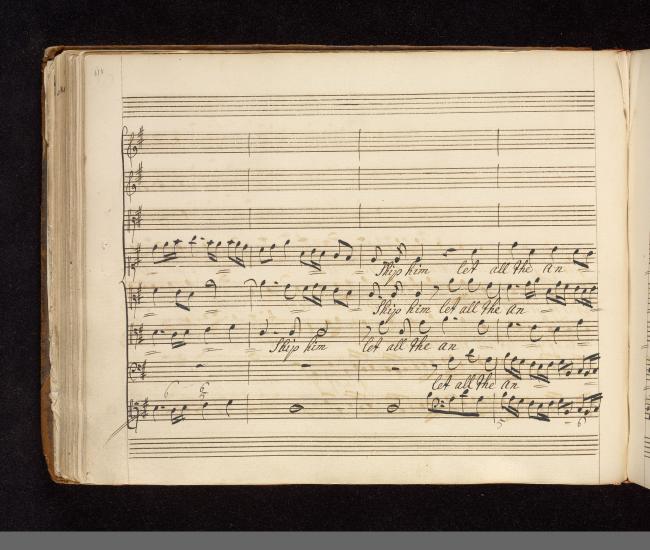 Ship him let all the an
Ship him let all the an
Ship him let all the an
let all the an
6 6
5 6